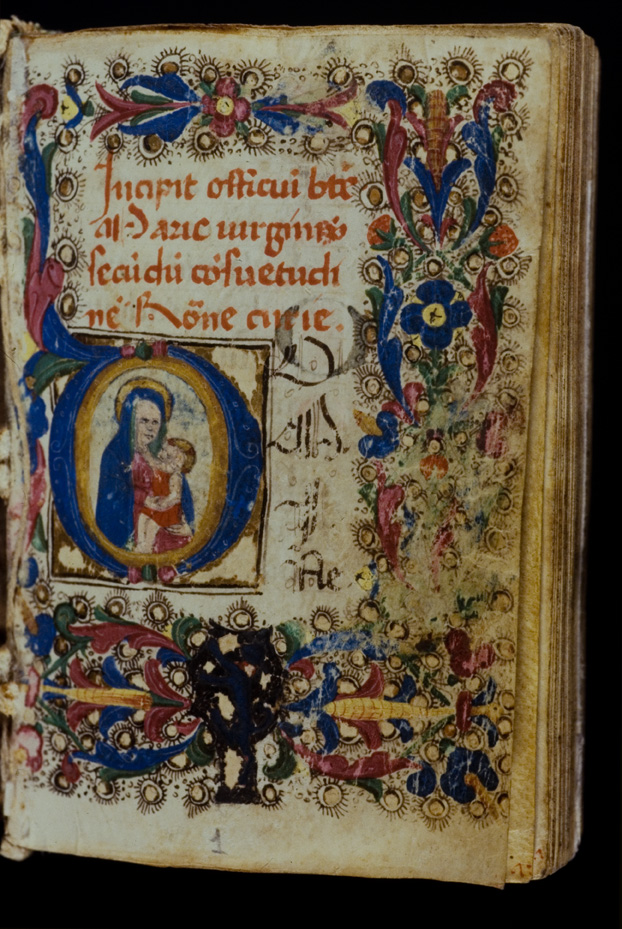 Incipit officiuȝ bte̅
Marie uirginis
secūdū cōsuetudi
nē Romēne curie.
D
M
I
Ne
1